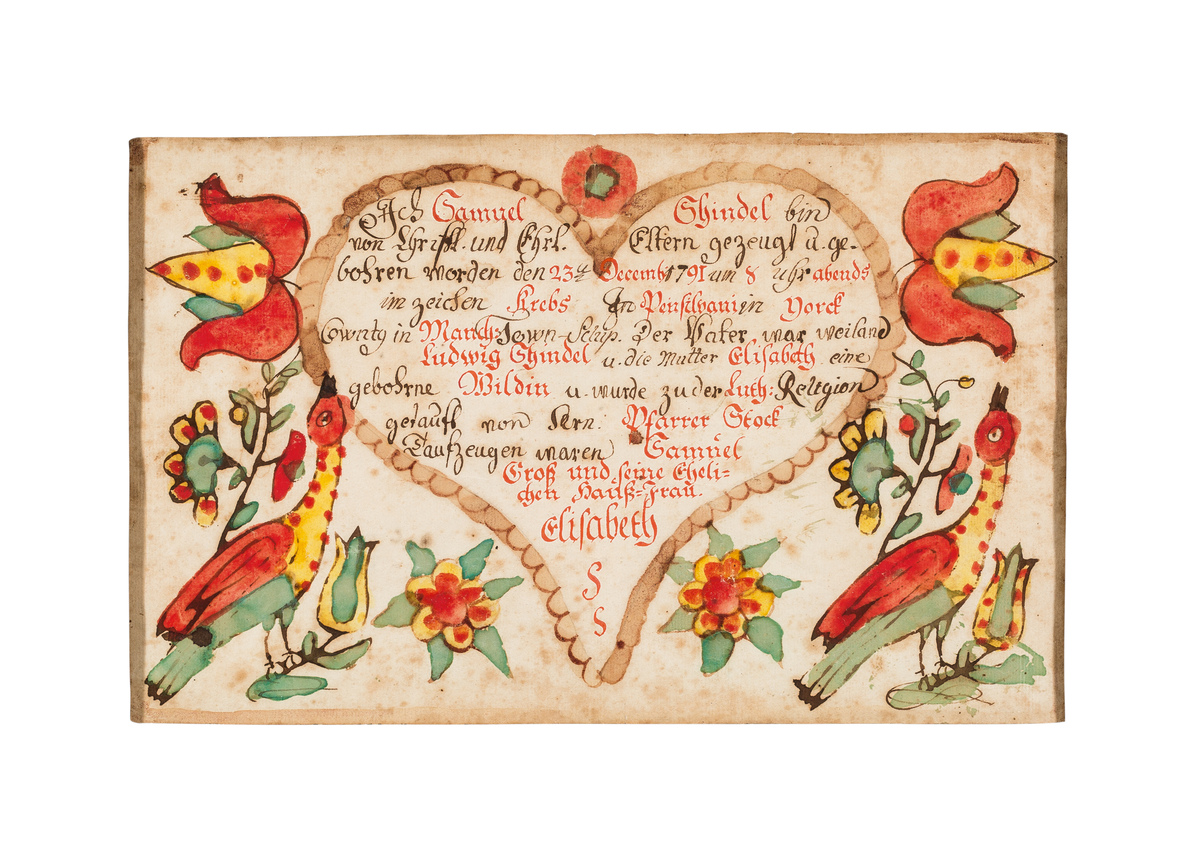 Ich Samuel Shindel bin
von Christl. und Ehrl. Eltern gezeugt u. ge-
bohren worden den 23t Decemb 1791 um 8 uhr abends
im zeichen Krebs In Pensilvanin in Yorck
Cownty in Manch: Town-Schip. Der Vater war weiland
Ludwig Shindel u. die Mutter Elisabeth eine
gebohrne Wildin u. wurde zu der Luth: Religion
getauft von Hrn: Pfarrer Stock
Taufzeugen waren Samuel
Groß und seine Eheli-
chen Hauß-Frau.
Elisabeth
S
S